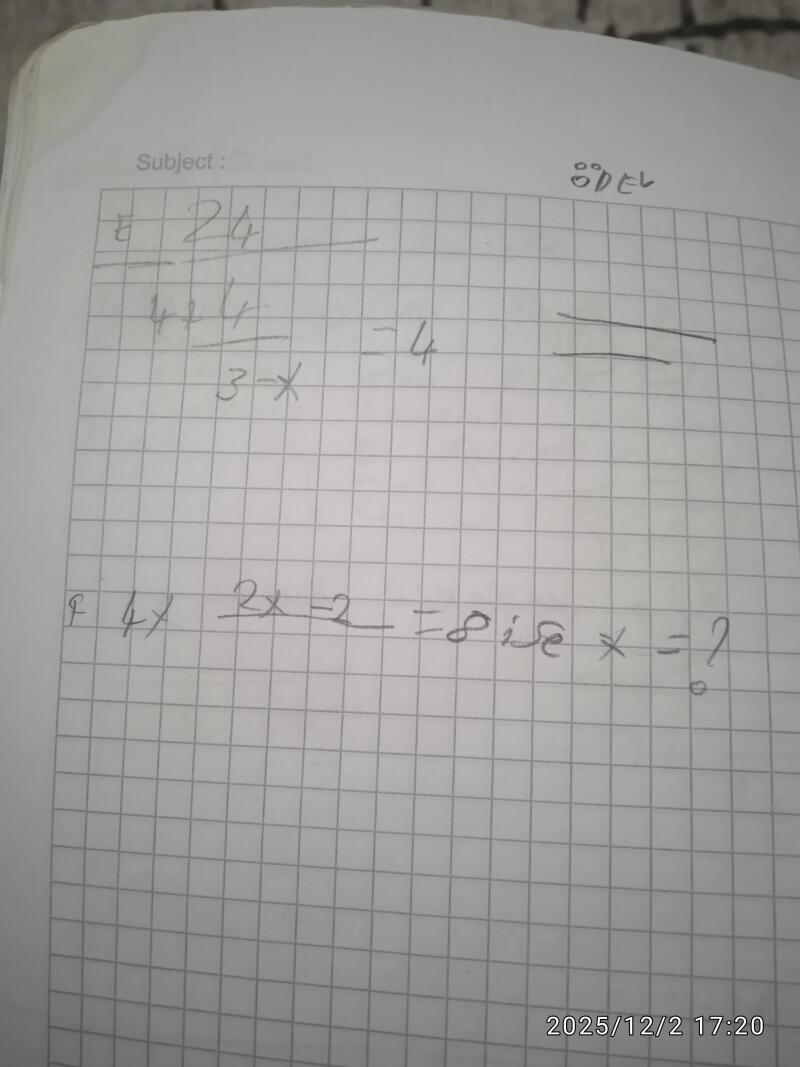 Subject :
ÖDEV
24
4+ 4
= 4
3-x
4x 2x-2 = 8 ise x = ?
2025/12/2 17:20